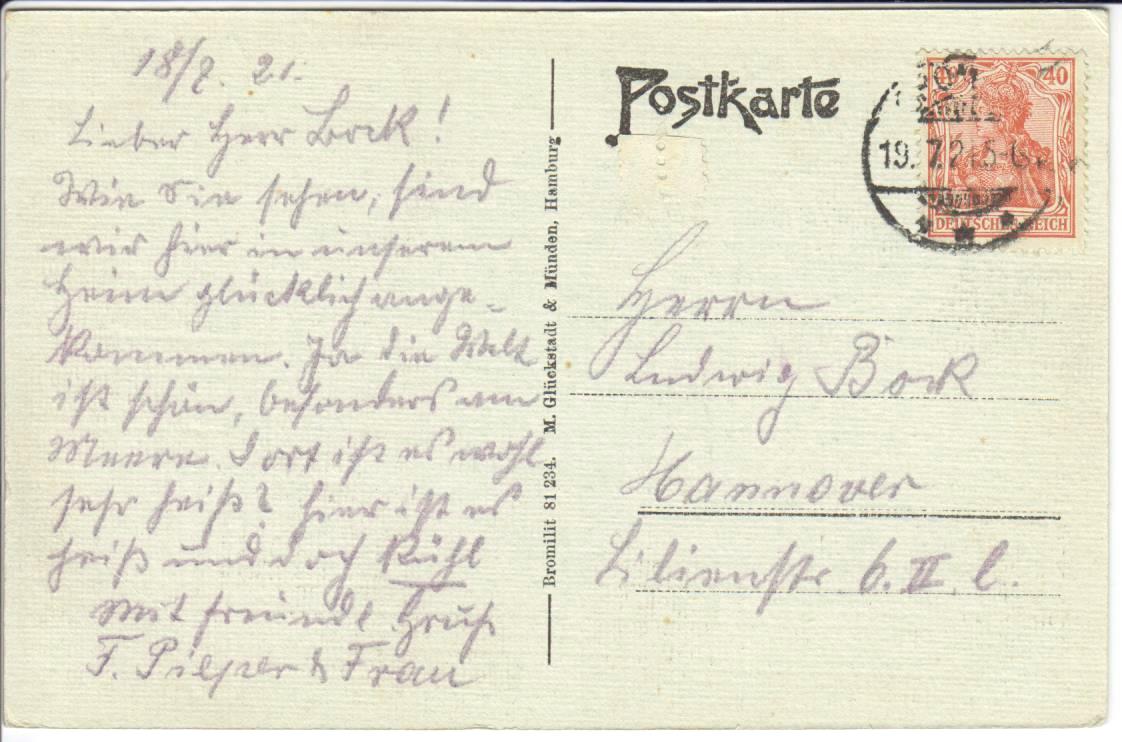 18/7. 21.
Lieber Herr Bock!
Wie Sie sehen, sind
wir hier in unserem
Heim glücklich ange-
kommen. Ja die Welt
ist schön, besonders am
Meere. Dort ist es wohl
sehr heiß? Hier ist es
heiß und doch kühl
Mit freundl Gruß
F. Pieper & Frau
Bromilit 81 234. M. Glückstadt & Münden, Hamburg
Postkarte
40
DEUTSCHES REICH
19. 7. 21. 5-6
Herrn
Ludwig Bock
Hannover
Lilienstr 6. II l.